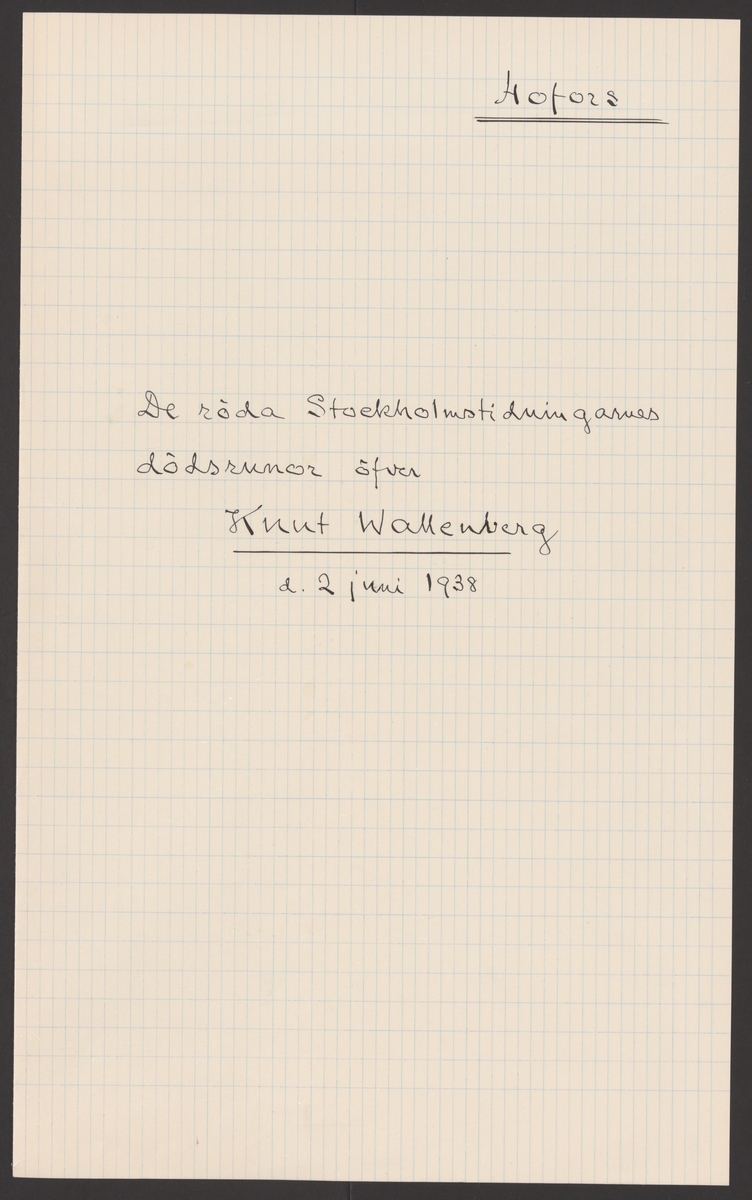 Hofors
De röda Stockholmstidningarnes
dödsrunor öfver
Knut Wallenberg
d. 2 juni 1938